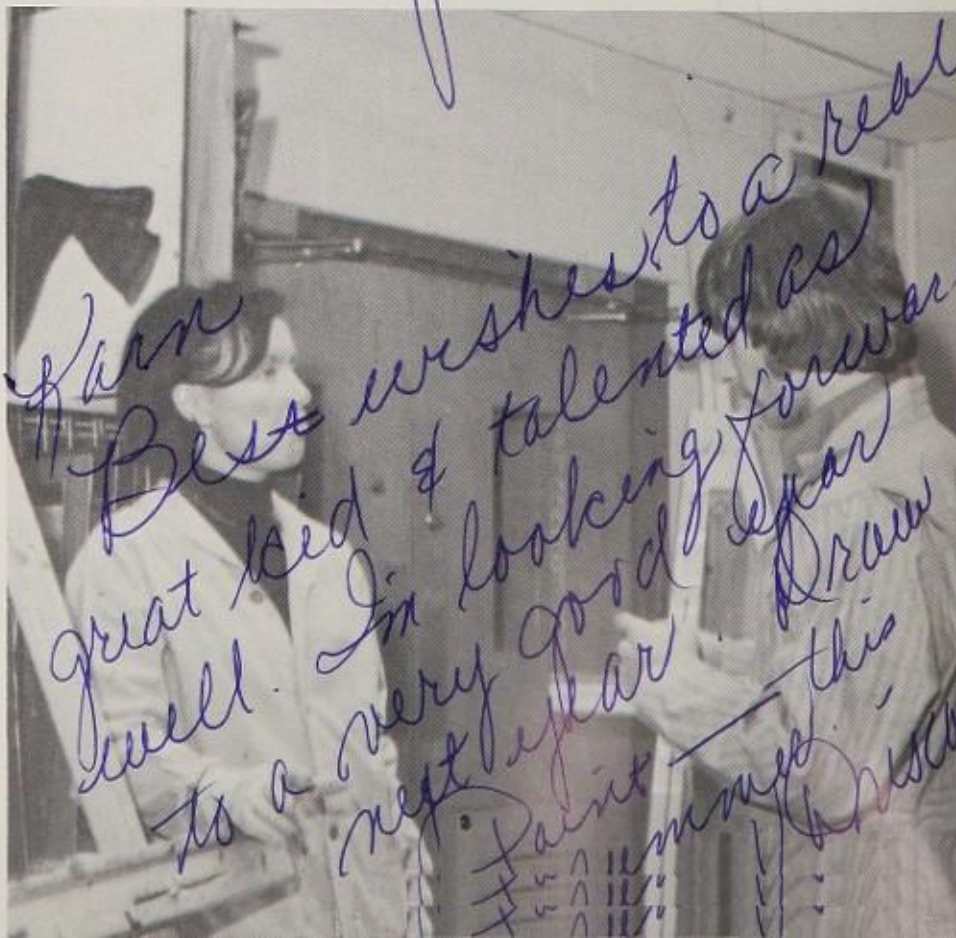 Karn
Best wishes to a real
great kid & talented as
well. I'm looking forwar
to a very good year
next year. Draw
Paint — this